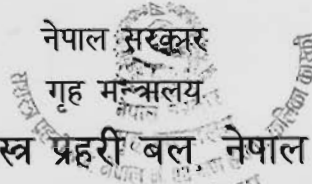 नेपाल सरकार
गृह मन्त्रालय
स्त्र प्रहरी बल, नेपाल